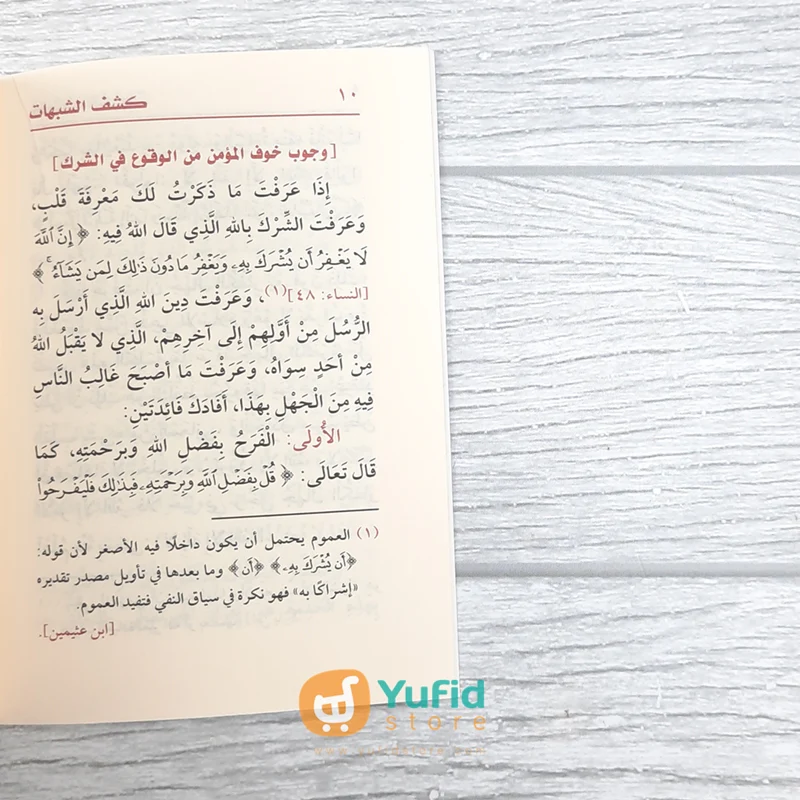 ١٠ كشف الشبهات
[وجوب خوف المؤمن من الوقوع في الشرك]
إِذَا عَرَفْتَ مَا ذَكَرْتُ لَكَ مَعْرِفَةَ قَلْبٍ،
وَعَرَفْتَ الشِّرْكَ بِاللهِ الَّذِي قَالَ اللهُ فِيهِ: ﴿ إِنَّ ٱللَّهَ
لَا يَغْفِرُ أَن يُشْرَكَ بِهِۦ وَيَغْفِرُ مَا دُونَ ذَٰلِكَ لِمَن يَشَآءُ ۚ ﴾
[النساء: ٤٨](١)، وَعَرَفْتَ دِينَ اللهِ الَّذِي أَرْسَلَ بِهِ
الرُّسُلَ مِنْ أَوَّلِهِمْ إِلَى آخِرِهِمْ، الَّذِي لا يَقْبَلُ اللهُ
مِنْ أَحَدٍ سِوَاهُ، وَعَرَفْتَ مَا أَصْبَحَ غَالِبُ النَّاسِ
فِيهِ مِنَ الْجَهْلِ بِهَذَا، أَفَادَكَ فَائِدَتَيْنِ:
الأُولَى: الْفَرَحُ بِفَضْلِ اللهِ وَبَرَحْمَتِهِ، كَمَا
قَالَ تَعَالَى: ﴿ قُلْ بِفَضْلِ ٱللَّهِ وَبِرَحْمَتِهِۦ فَبِذَٰلِكَ فَلْيَفْرَحُوا۟
(١) العموم يحتمل أن يكون داخلًا فيه الأصغر لأن قوله:
﴿أَن يُشْرَكَ بِهِۦ﴾ ﴿أَن﴾ وما بعدها في تأويل مصدر تقديره
«إشراكًا به» فهو نكرة في سياق النفي فتفيد العموم.
[ابن عثيمين].
Yufid
store